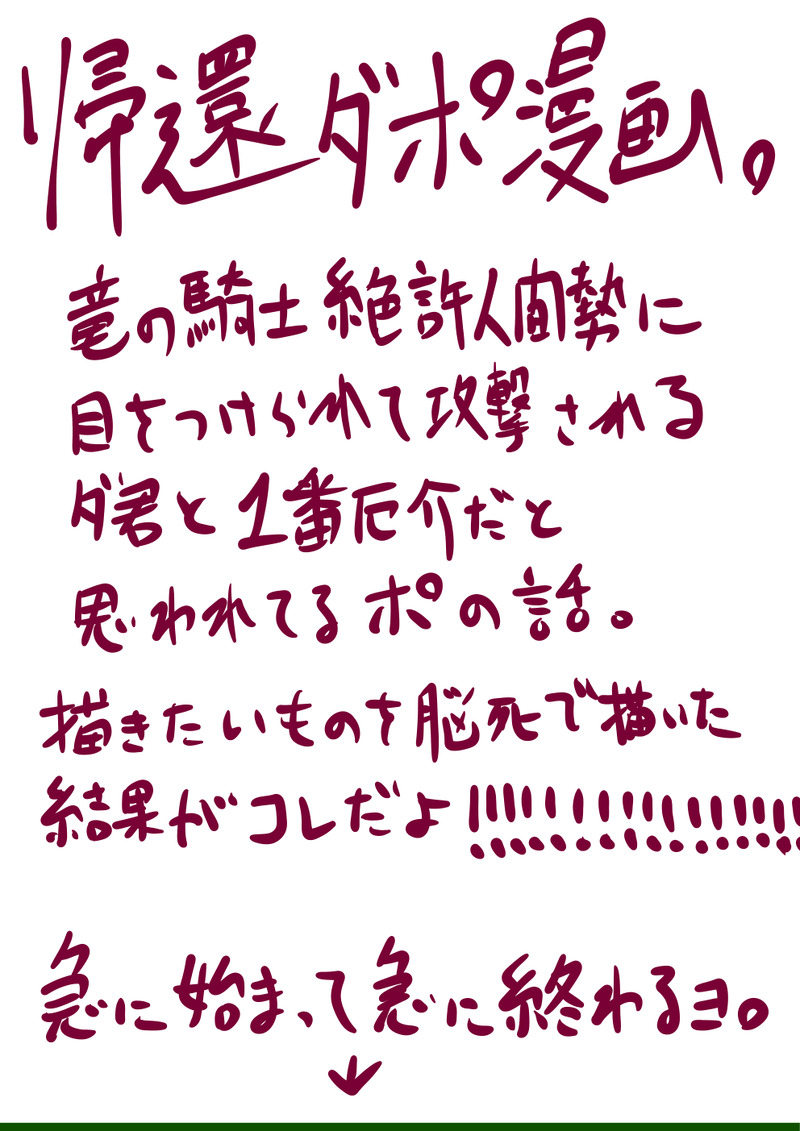 帰還ダポ漫画。
竜の騎士絶許人間勢に
目をつけられて攻撃される
ダ君と1番厄介だと
思われてるポの話。
描きたいものを脳死で描いた
結果がコレだよ!!!!!!!!!!!!!!!!!!
急に始まって急に終わるヨ。
↓